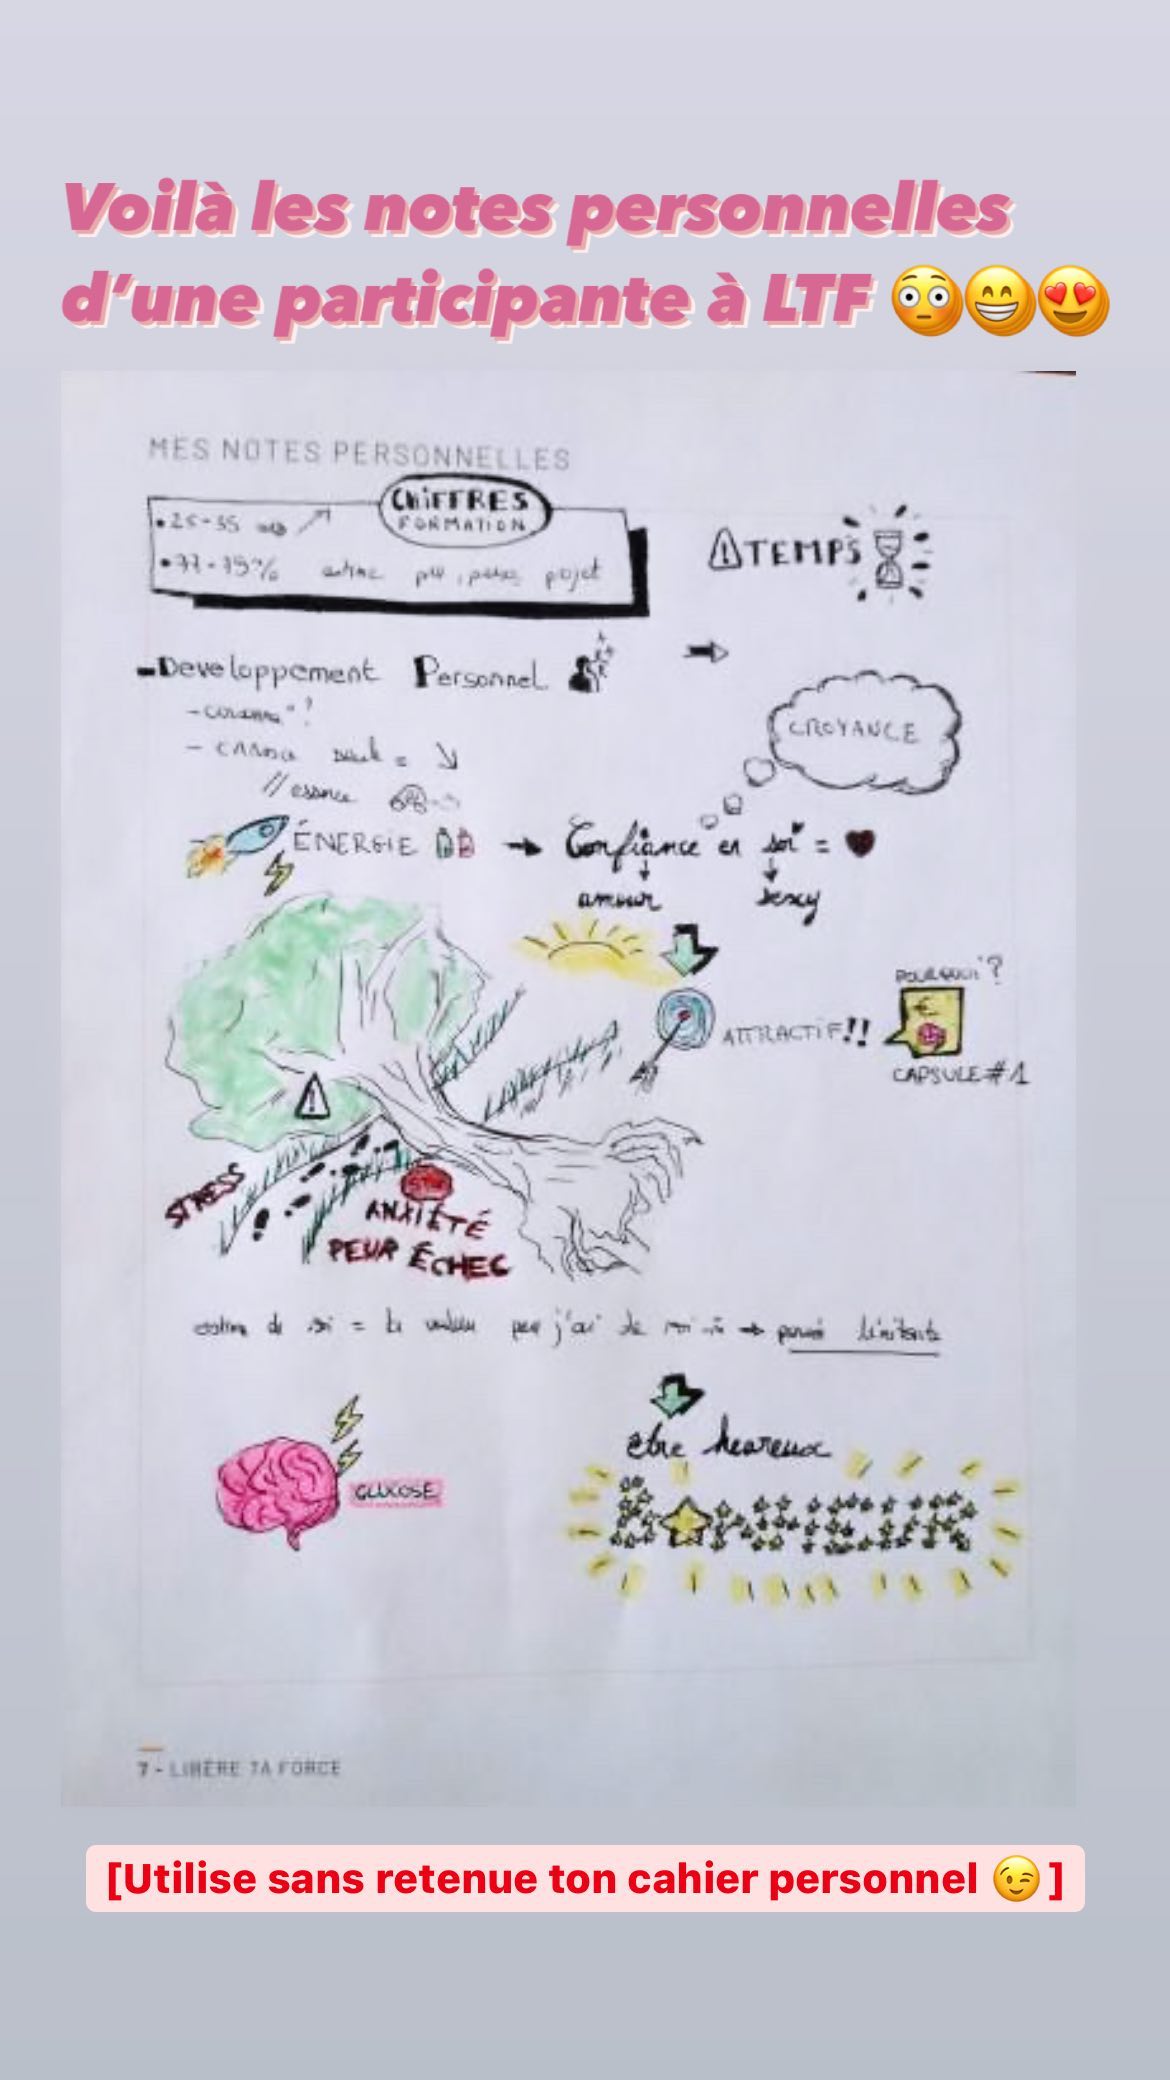 Voilà les notes personnelles
d'une participante à LTF 😳😁😍
MES NOTES PERSONNELLES
CHIFFRES
FORMATION
• 25-35
• 77-79% estime projet
⚠ TEMPS
- Developpement Personnel
CROYANCE
- 
// essence
ÉNERGIE → Confiance en soi = ♥
amour
sexy
POURQUOI?
€
ATTRACTIF!!
CAPSULE #1
STRESS
STOP
ANXIÉTÉ
PEUR ÉCHEC
estime de soi = la valeur que j'ai de moi → pensée limitante
être heureux
GLUCOSE
7 - LIBÈRE TA FORCE
[Utilise sans retenue ton cahier personnel 😉]